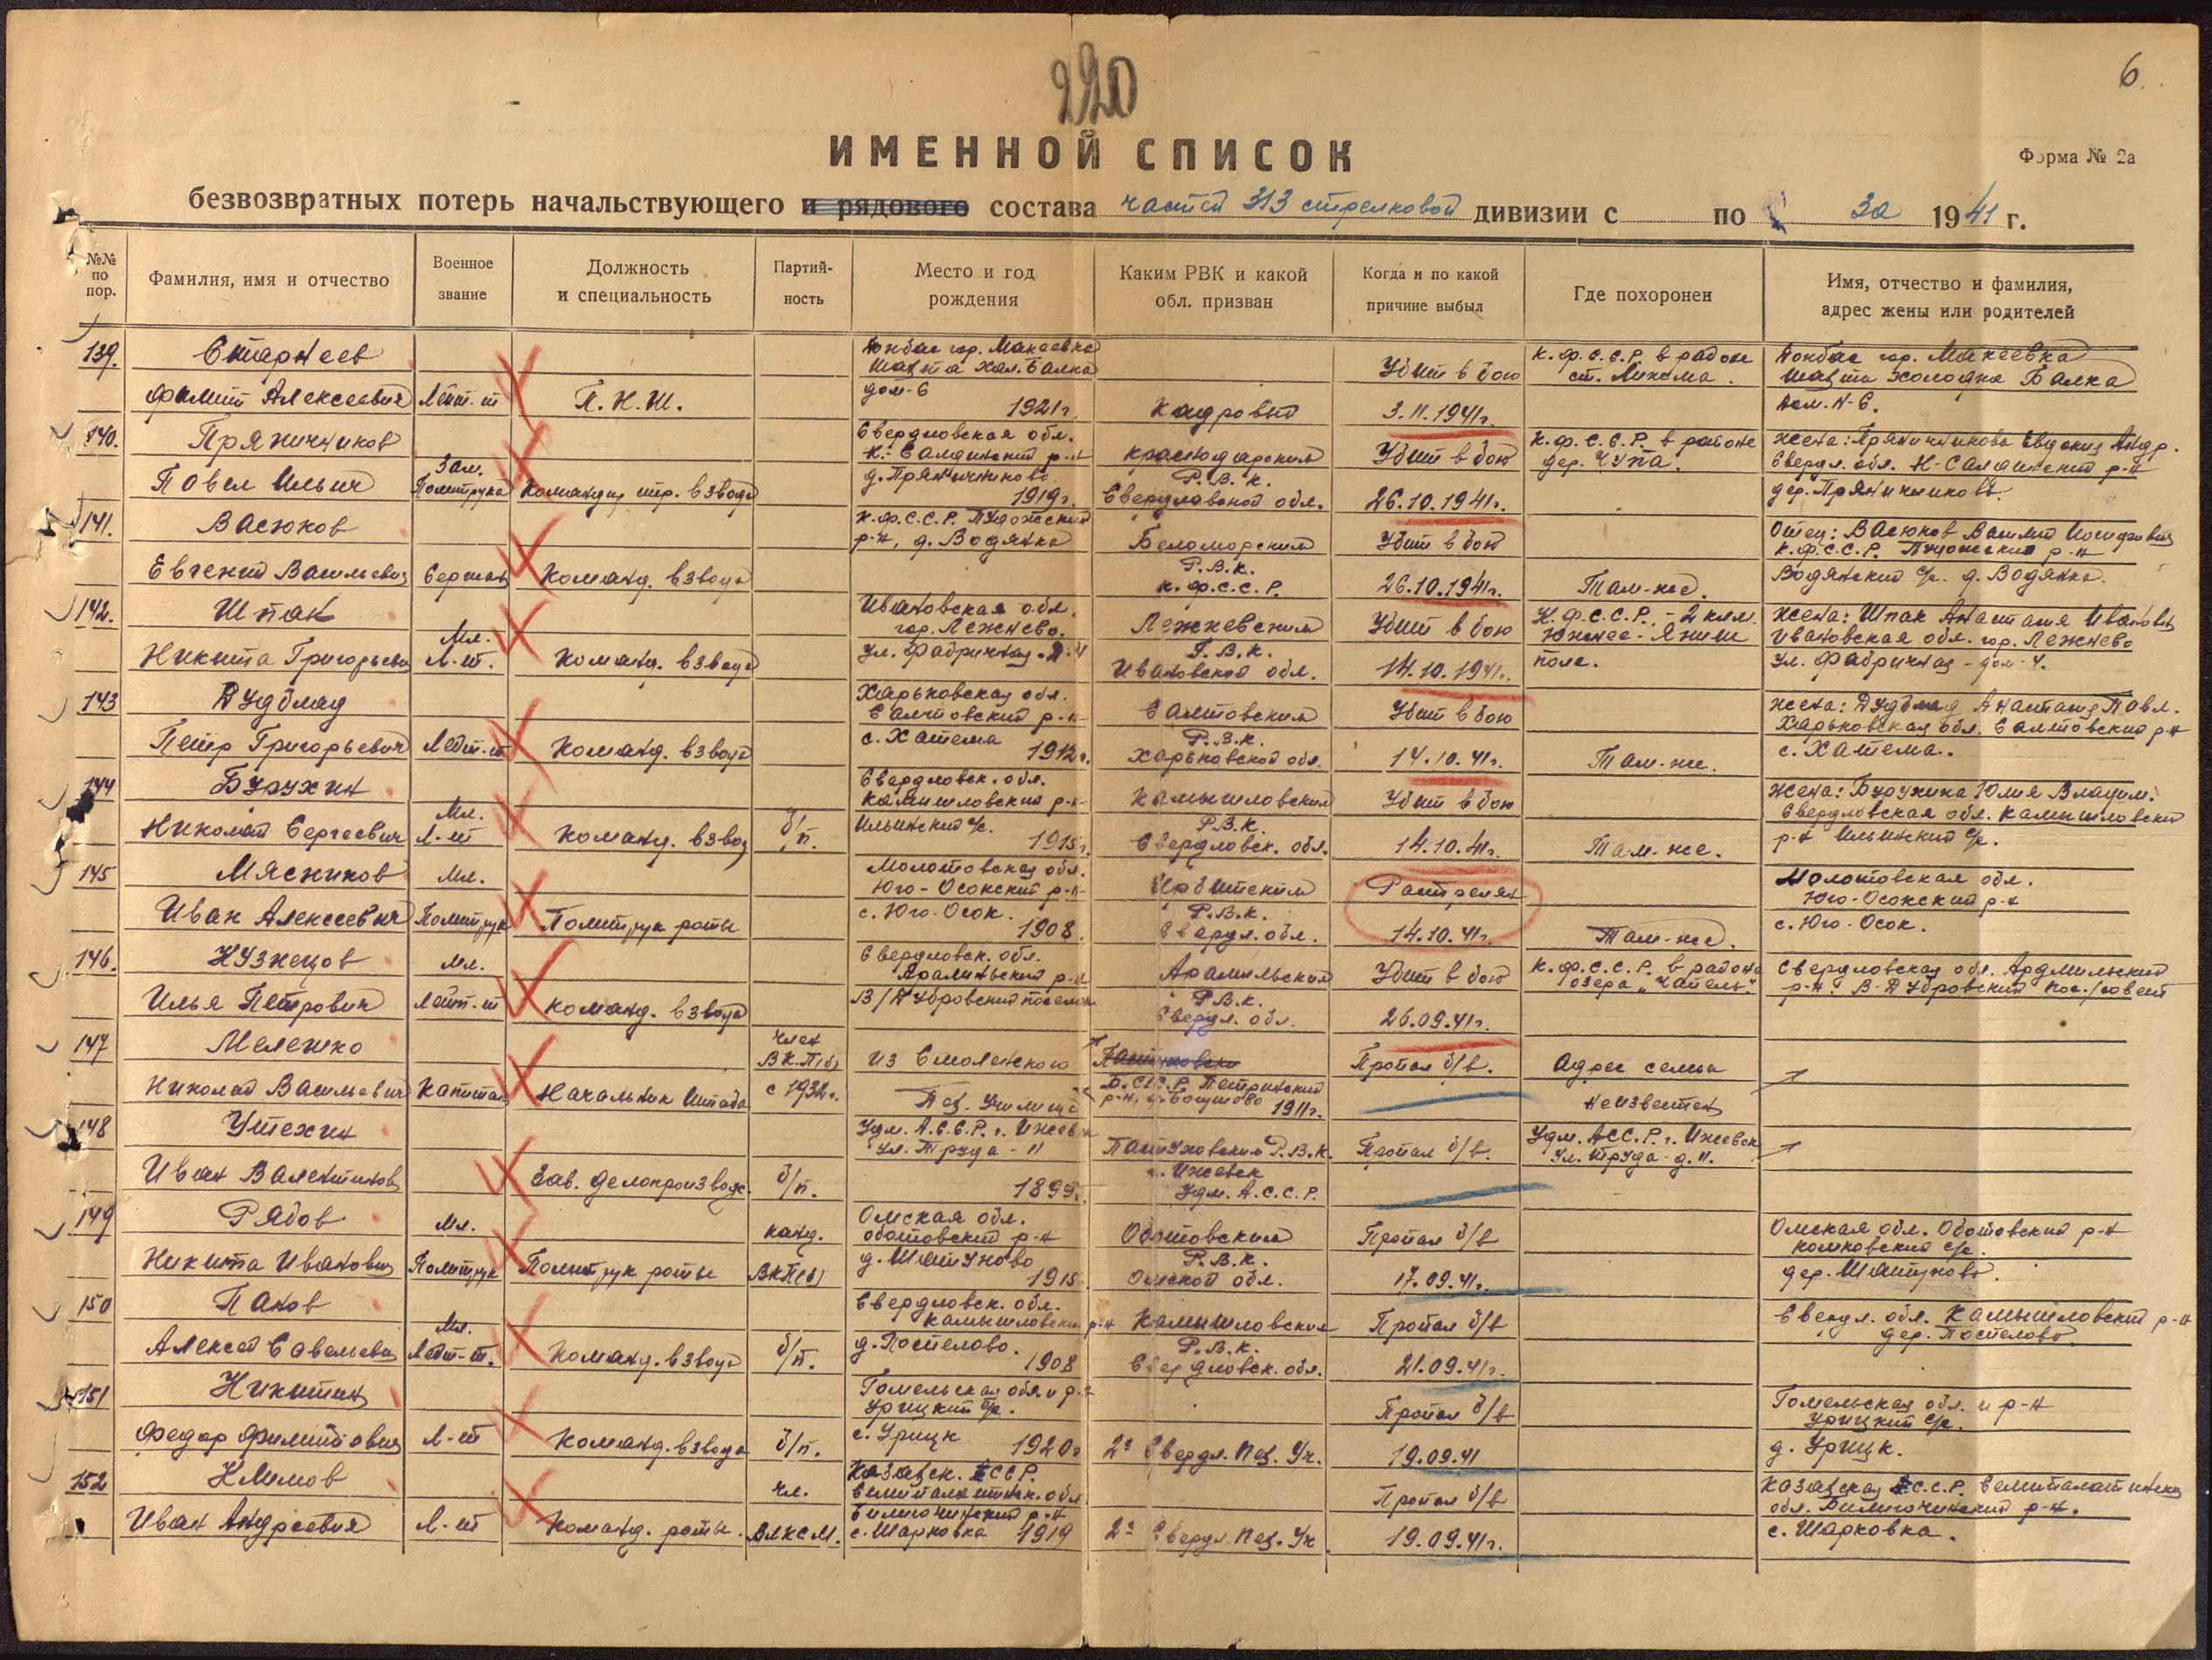 220
6.
ИМЕННОЙ СПИСОК
Форма № 2а
безвозвратных потерь начальствующего и рядового состава частей 313 стрелковой дивизии с по за 1941 г.
№№ по пор.
Фамилия, имя и отчество
Военное звание
Должность и специальность
Партий-ность
Место и год рождения
Каким РВК и какой обл. призван
Когда и по какой причине выбыл
Где похоронен
Имя, отчество и фамилия, адрес жены или родителей
139.
Алексеевич Лейт-т
П.Н.Ш.
Донбас гор. Макеевка
Шахта Хол. Балка
дом-6
1921г.
Кадровый
Убит в бою
3.11.1941г.
К.Ф.С.С.Р. в районе
ст.
Донбас гор. Макеевка
Шахта Холодна Балка
дом.N-6.
140.
Пряничников
Павел Ильич
Зам. Политрука
Командир стр. взвода
Свердловская обл.
д. Пряничниково
1919г.
Р.В.К.
Свердловской обл.
Убит в бою
26.10.1941г.
К.Ф.С.С.Р. в районе
дер. Чупа.
Жена: Пряничникова Евдокия Андр.
Свердл. обл. Н-Салдинский р-н
дер. Пряничникова.
141.
Васюков
Евгений Васильевич
Сержант
Команд. взвода
К.Ф.С.С.Р. Пудожский
р-н, д. Водянка
Беломорским
Р.В.К.
К.Ф.С.С.Р.
Убит в бою
26.10.1941г.
Там-же.
Отец: Васюков Василий
К.Ф.С.С.Р. Пудожский р-н
Водянский с/с. д. Водянка.
142.
Шпак
Никита Григорьевич
Мл. Л-т.
Команд. взвода
Ивановская обл.
гор. Лежнево.
ул. Фабричная
Лежневским
Р.В.К.
Ивановской обл.
Убит в бою
14.10.1941г.
К.Ф.С.С.Р. - 2 клм.
Южнее - Яниш
поле.
Жена: Шпак Анастасия Ивановна
Ивановская обл. гор. Лежнево
ул. Фабричная - дом-4.
143
Петр Григорьевич
Лейт-т
Команд. взвода
Харьковская обл.
Салтовский р-н
с. Хатема
1912г.
Салтовским
Р.В.К.
Харьковской обл.
Убит в бою
14.10.41г.
Там-же.
Харьковская обл. Салтовский р-н
с. Хатема.
144
Бурухин
Николай Сергеевич
Мл. Л-т
Команд. взвод
б/п.
Свердловск. обл.
Камышловский р-н
Ильинский с/с.
1915г.
Камышловским
Р.В.К.
Свердловск. обл.
Убит в бою
14.10.41г.
Там-же.
Жена: Бурухина Юлия Владим.
Свердловская обл. Камышловский
р-н Ильинский с/с.
145
Мясников
Иван Алексеевич
Мл. Политрук
Политрук роты
Молотовская обл.
Юго-Осокский р-н
с. Юго-Осок.
1908.
Ирбитским
Р.В.К.
Свердл. обл.
Растрелян
14.10.41г.
Там-же.
Молотовская обл.
Юго-Осокский р-н
с. Юго-Осок.
146.
Кузнецов
Илья Петрович
Мл. Лейт-т
Команд. взвода
Свердловск. обл.
Арамильский р-н
В/Дубровский поселок
Арамильским
Р.В.К.
Свердл. обл.
Убит в бою
26.09.41г.
К.Ф.С.С.Р. в районе
озера
Свердловская обл. Арамильский
р-н. В-Дубровский пос./совет
147
Мелешко
Николай Васильевич
Капитан
Начальник Штаба
член
ВКП(б)
с 1932г.
из Смоленского
Пех. Училища
1911г.
Пропал б/в.
Адрес семьи
неизвестен
148
Утехин
Иван Валентинов
Зав. делопроизвод.
б/п.
Удм. А.С.С.Р. г. Ижевск
ул. Труда - 11
1899г.
Пастуховским Р.В.К.
г. Ижевск
Удм. А.С.С.Р.
Пропал б/в.
Удм. АССР. г. Ижевск
ул. Труда - д. 11.
149
Рябов
Никита Иванович
Мл. Политрук
Политрук роты
канд.
ВКП(б)
Омская обл.
д. Шатуново
1915
Р.В.К.
Омской обл.
Пропал б/в
17.09.41г.
Омская обл.
дер. Шатуново.
150
Панов
Алексей Савельевич
Мл. Лейт-т.
Команд. взвода
б/п.
Свердловск. обл.
Камышловский р-н
д. Поспелово.
1908
Камышловским
Р.В.К.
Свердловск. обл.
Пропал б/в
21.09.41г.
Свердл. обл. Камышловский р-н
дер. Поспелово
151
Никитин
Федор
Л-т
Команд. взвода
б/п.
Гомельская обл. и р-н
Урицкий с/с.
с. Урицк
1920г
2е Свердл. Пех. Уч.
Пропал б/в
19.09.41
Гомельская обл. и р-н
Урицкий с/с.
д. Урицк.
152
Климов
Иван Андреевич
Л-т
Команд. роты.
чл.
ВЛКСМ.
Казахск. ССР.
Семипалатинск. обл
с. Шарковка 1919
2е Свердл. Пех. Уч
Пропал б/в
19.09.41г.
Казахская С.С.Р. Семипалатинская
обл.
с. Шарковка.